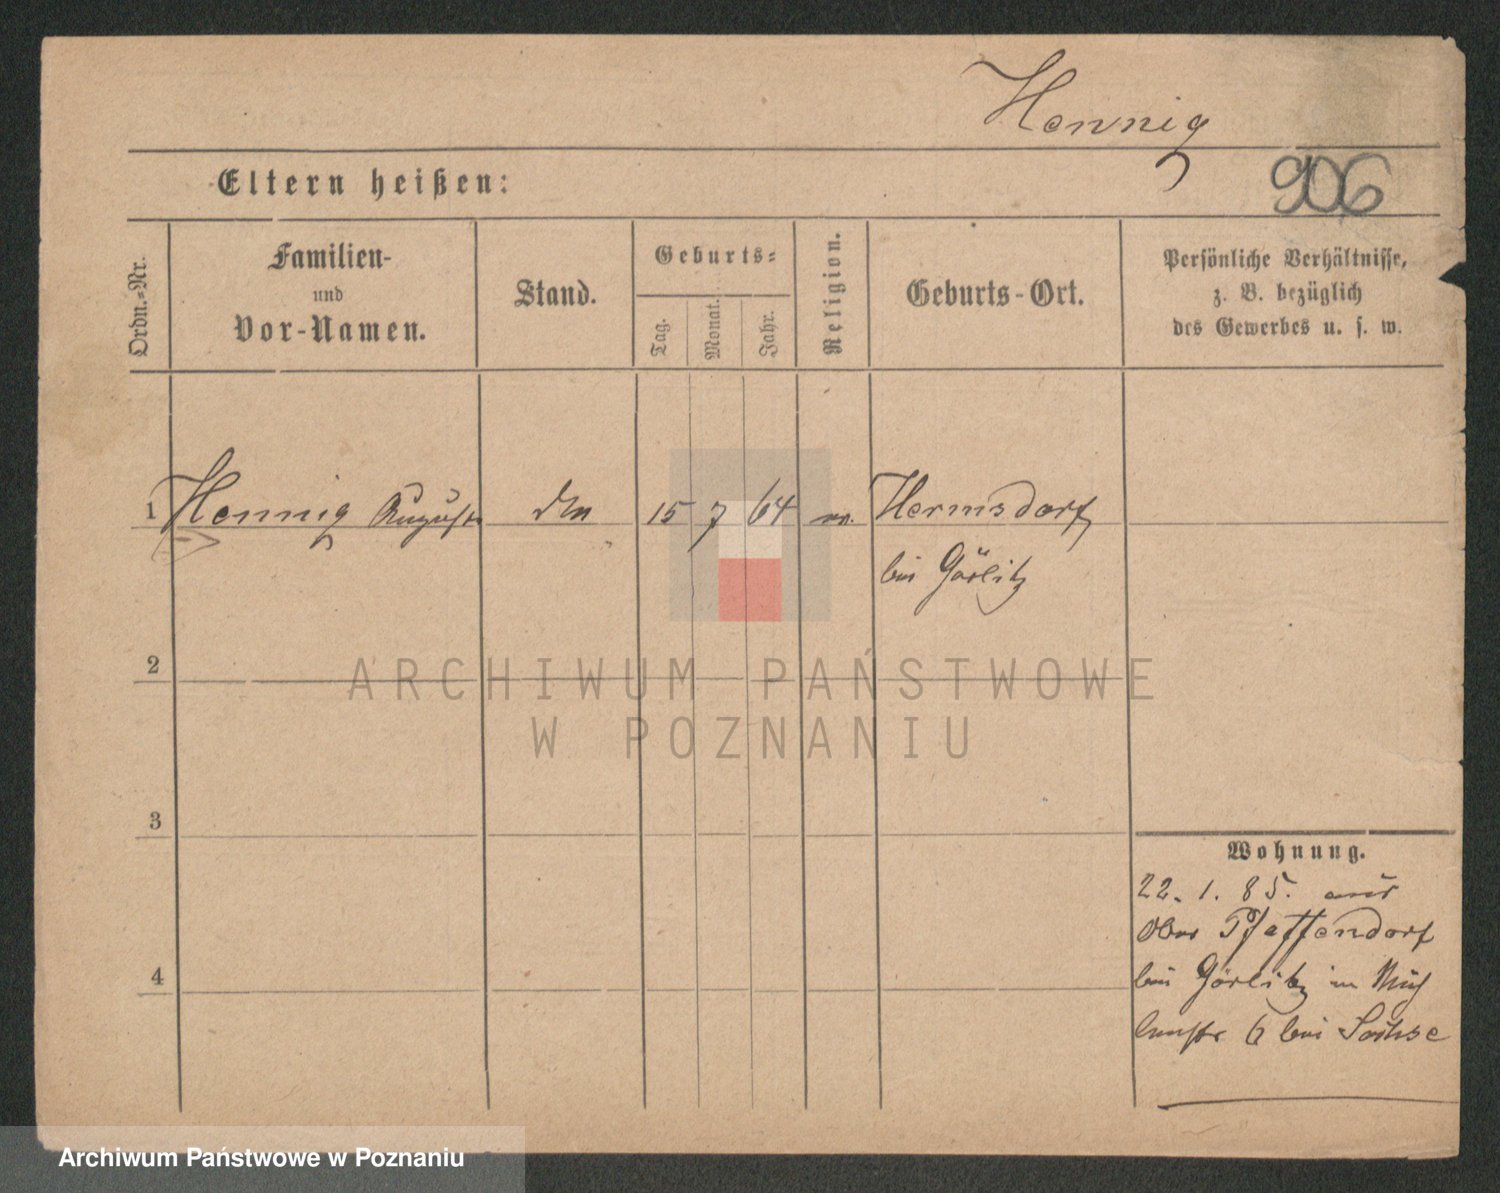 Hennig
906
Eltern heißen:
Ordn.-Nr.
Familien-
und
Vor-Namen.
Stand.
Geburts-
Tag.
Monat.
Jahr.
Religion.
Geburts-Ort.
Persönliche Verhältnisse,
z. B. bezüglich
des Gewerbes u. s. w.
1 Hennig August 15 7 64 Hermsdorf
bei Görlitz
2
ARCHIWUM PAŃSTWOWE
W POZNANIU
3
4
Wohnung.
22. 1. 85. aus
Ober Pfaffendorf
bei Görlitz in Müh
lenstr 6 bei Sachse
Archiwum Państwowe w Poznaniu